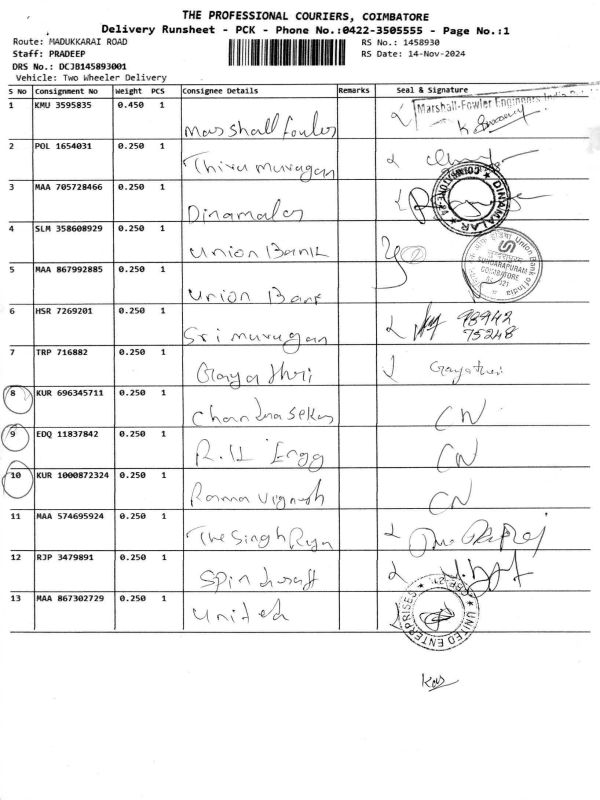 THE PROFESSIONAL COURIERS, COIMBATORE
Delivery Runsheet - PCK - Phone No.:0422-3505555 - Page No.:1
Route: MADUKKARAI ROAD RS No.: 1458930
Staff: PRADEEP RS Date: 14-Nov-2024
DRS No.: DCJB145893001
Vehicle: Two Wheeler Delivery
S No Consignment No Weight PCS Consignee Details Remarks Seal & Signature
1 KMU 3595835 0.450 1 Marshall Fowler Marshall-Fowler Engineers
2 POL 1654031 0.250 1 Thiru murugan
3 MAA 705728466 0.250 1 Dinamalar DINAMALAR COIMBATORE
4 SLM 358608929 0.250 1 Union Bank
5 MAA 867992885 0.250 1 Union Bank Union Bank of India SUNDARAPURAM COIMBATORE
6 HSR 7269201 0.250 1 Sri murugan 98942
75248
7 TRP 716882 0.250 1 Gayathri Gayathri
8 KUR 696345711 0.250 1 Chandrasekar CN
9 EDQ 11837842 0.250 1 R. Engg CN
10 KUR 1000872324 0.250 1 Rama vignesh CN
11 MAA 574695924 0.250 1 The Singh
12 RJP 3479891 0.250 1
13 MAA 867302729 0.250 1 United UNITED ENTERPRISES